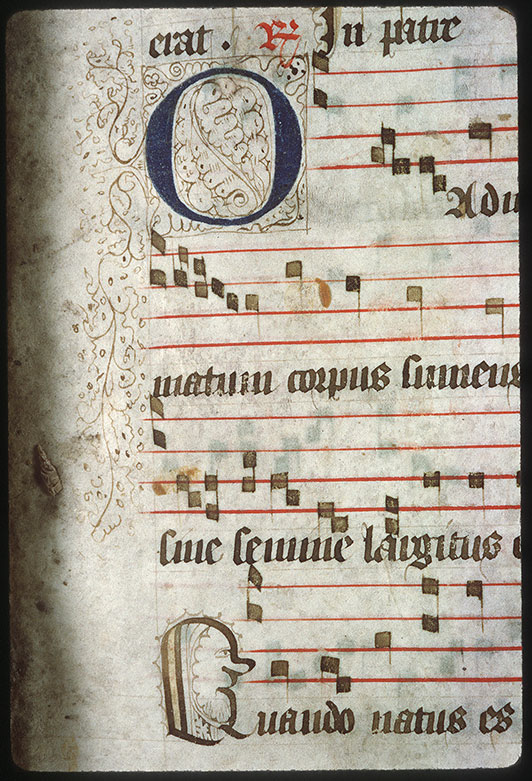 erat . R In patre
O Adm
matum corpus sumens
sine semine largitus e
Quando natus es